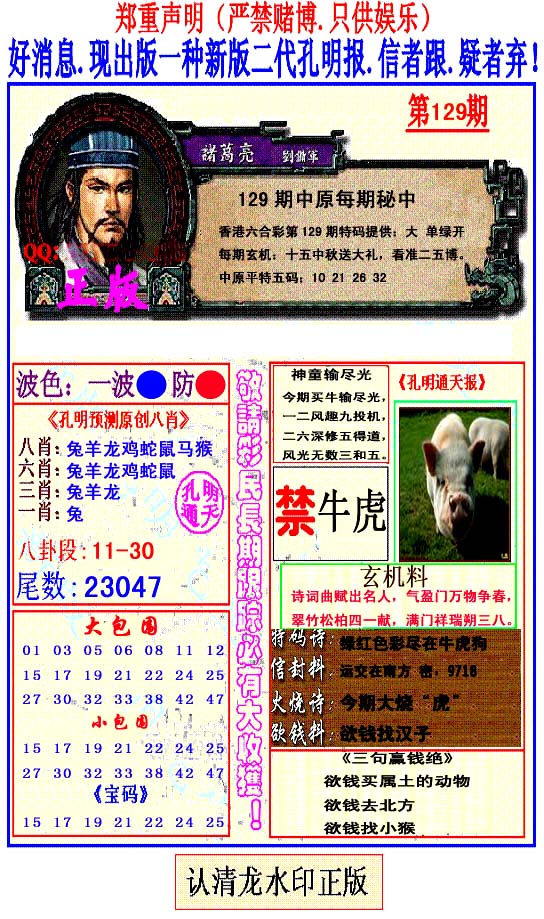 郑重声明（严禁赌博.只供娱乐）
好消息.现出版一种新版二代孔明报.信者跟.疑者弃！
第129期
諸葛亮 劉備軍
129 期中原每期秘中
香港六合彩第 129 期特码提供：大 单绿开
每期玄机：十五中秋送大礼，看准二五博。
中原平特五码：10 21 26 32
QQ:
正版
波色：一波 防
《孔明预测原创八肖》
八肖：兔羊龙鸡蛇鼠马猴
六肖：兔羊龙鸡蛇鼠
三肖：兔羊龙
一肖：兔
孔明
通天
八卦段：11-30
尾数：23047
大包围
01 03 05 06 08 11 12
15 17 19 21 22 24 25
27 30 32 33 38 42 47
小包围
15 17 19 21 22 24 25
27 30 32 33 38 42 47
《宝码》
15 17 19 21 22 24 25
敬請彩民長期跟踪必有大收獲！
神童输尽光
今期买牛输尽光，
一二风趣九投机，
二六深修五得道，
风光无数三和五。
《孔明通天报》
禁牛虎
玄机料
诗词曲赋出名人，气盈门万物争春，
翠竹松柏四一献，满门祥瑞朔三八。
特码诗：绿红色彩尽在牛虎狗
信封料：运交在南方 密，9716
火烧诗：今期大烧“虎”
欲钱料：欲钱找汉子
《三句赢钱绝》
欲钱买属土的动物
欲钱去北方
欲钱找小猴
认清龙水印正版